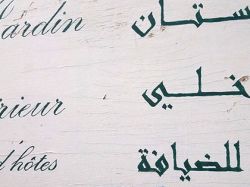 Jardin ستان
rieur خلي
d'hôtes للضيافة